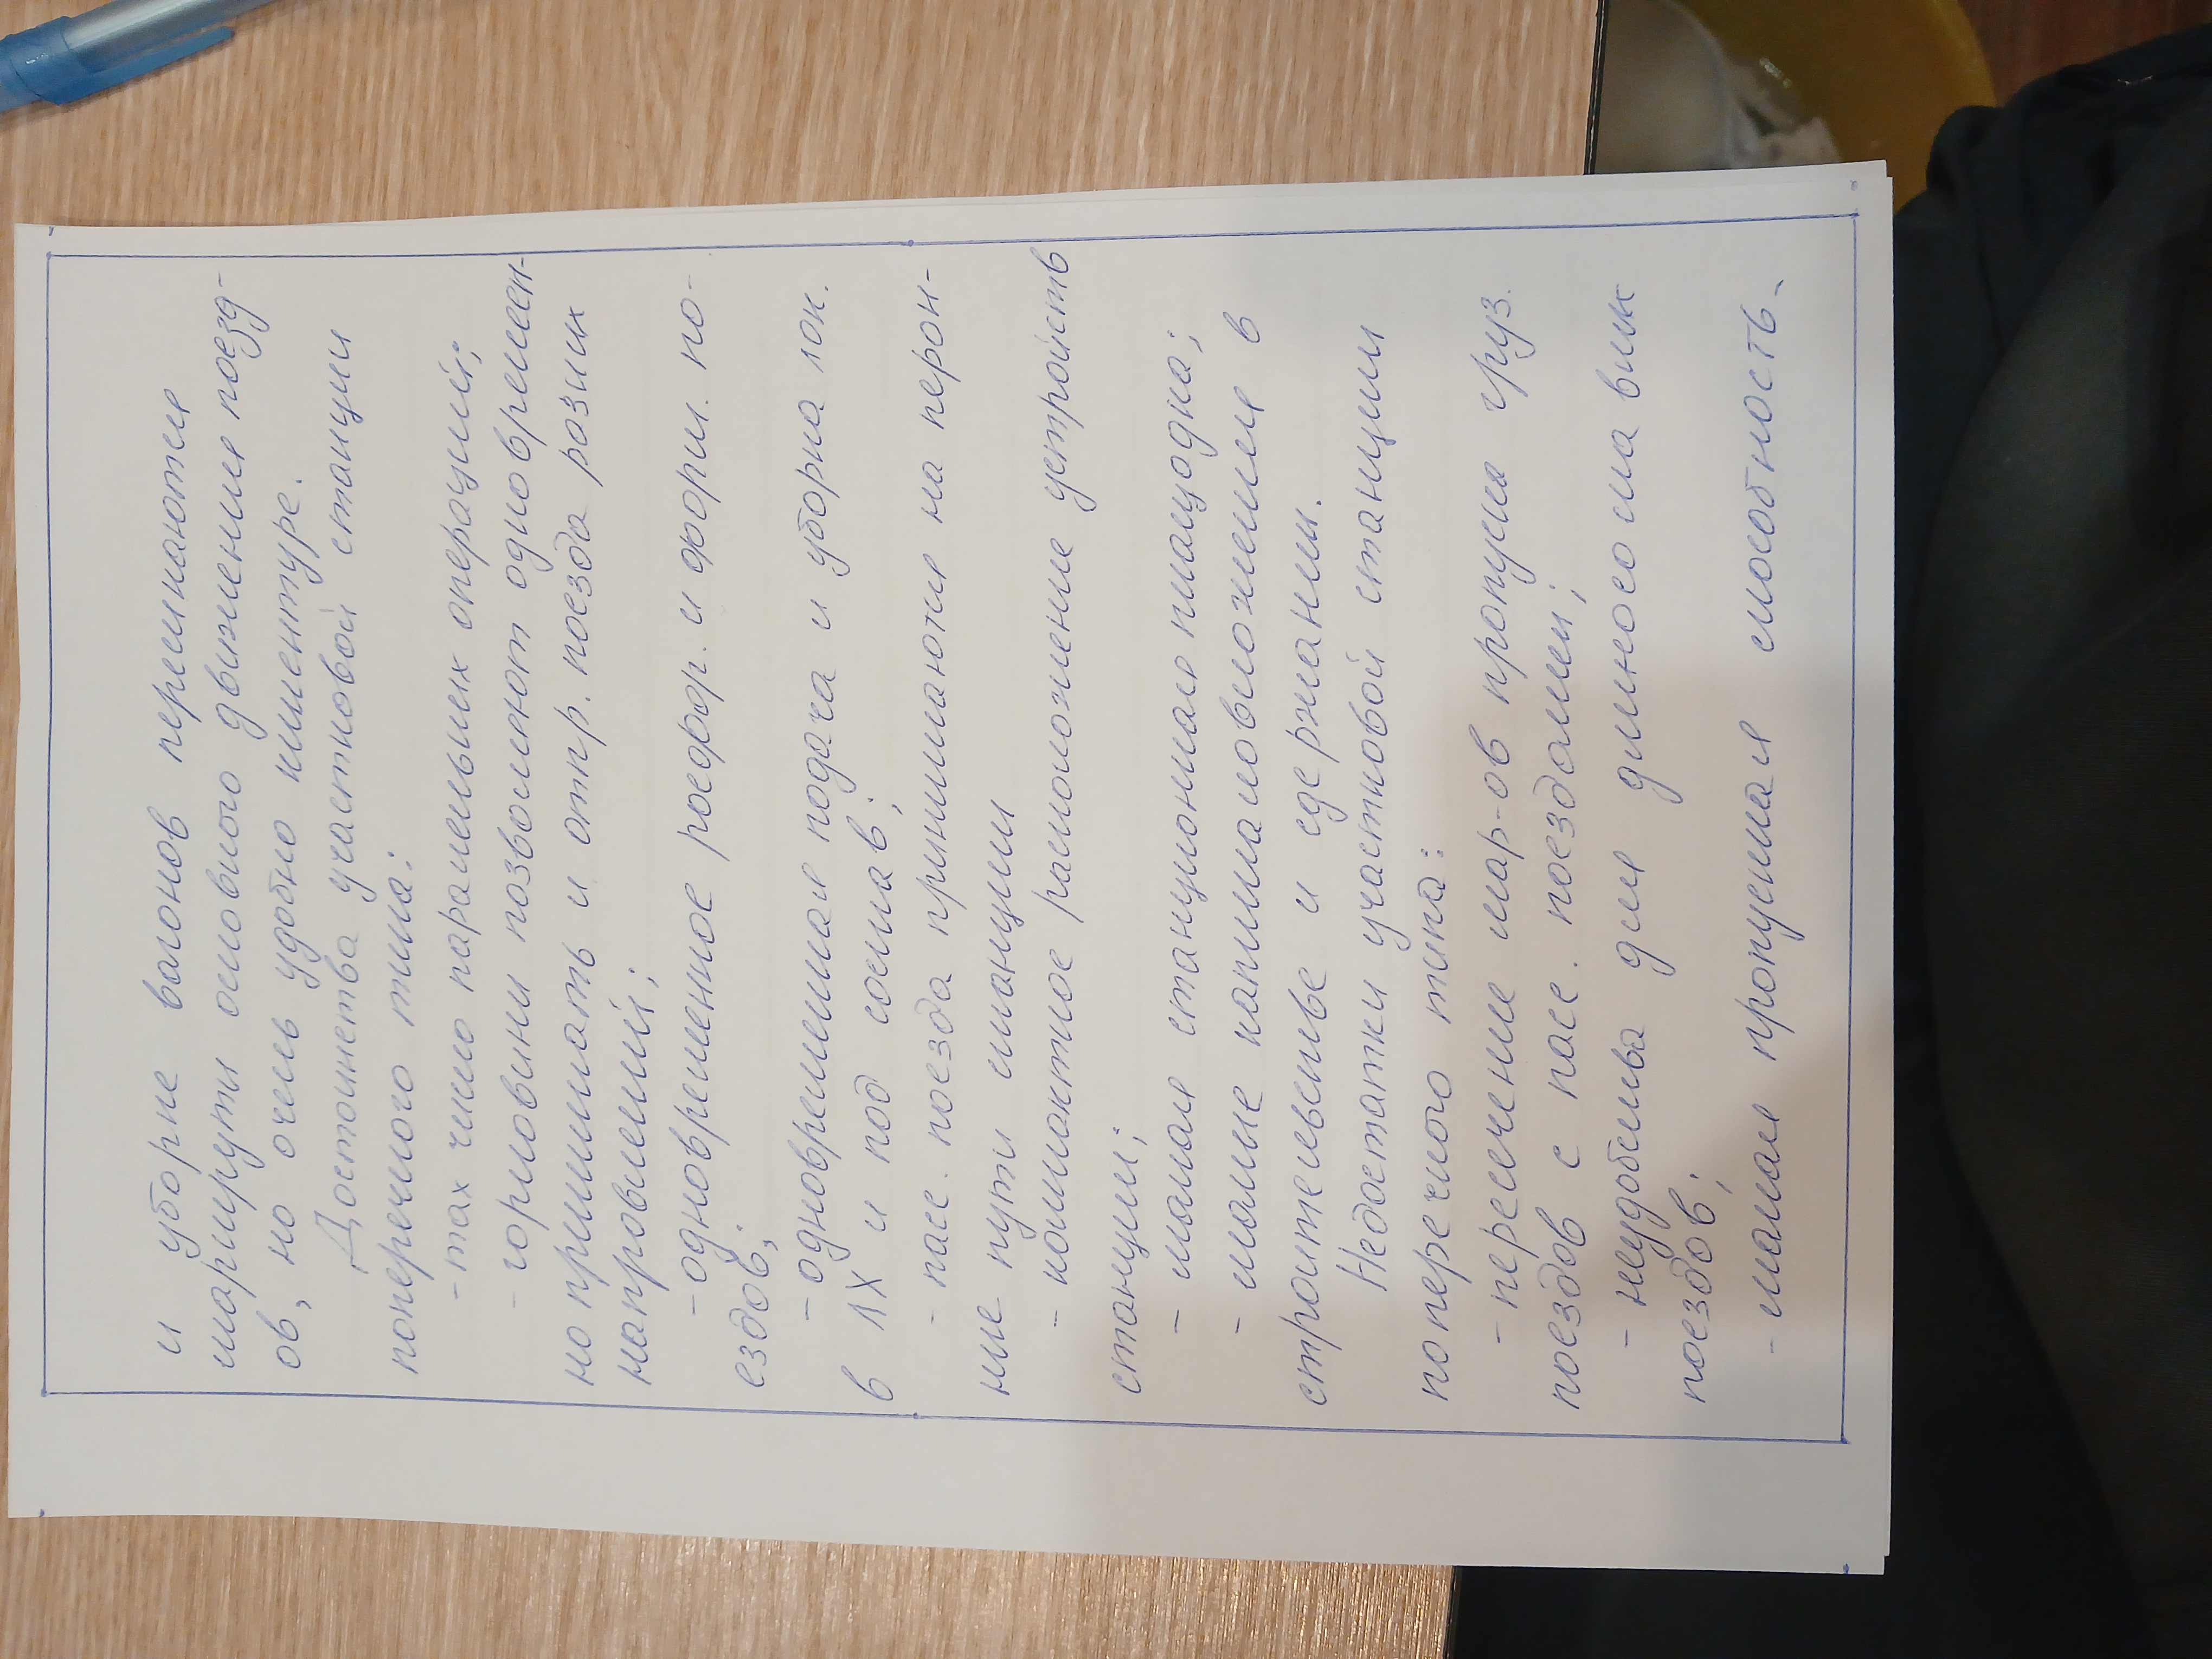 и уборке вагонов пересекаются
маршруты основного движения поезд-
ов, но очень удобно клиентуре.
Достоинства участковой станции
поперечного типа:
- max число паралельных операций;
- горловини позволяют одновремен-
но принимать и отпр. поезда разных
направлений;
- одновременное расфор. и форм. по-
ездов;
- одновременная подача и уборка лок.
в ЛХ и под состав;
- пасс. поезда принимаются на перон-
ные пути станции
- компактное расположение устройств
станции;
- малая станционная площадка;
- малые капиталовложения в
строительстве и сдержании.
Недостатки участковой станции
поперечного типа:
- пересечение мар-ов пропуска груз.
поездов с пасс. поездами;
- неудобства для длинносоставных
поездов;
- малая пропускная способность.